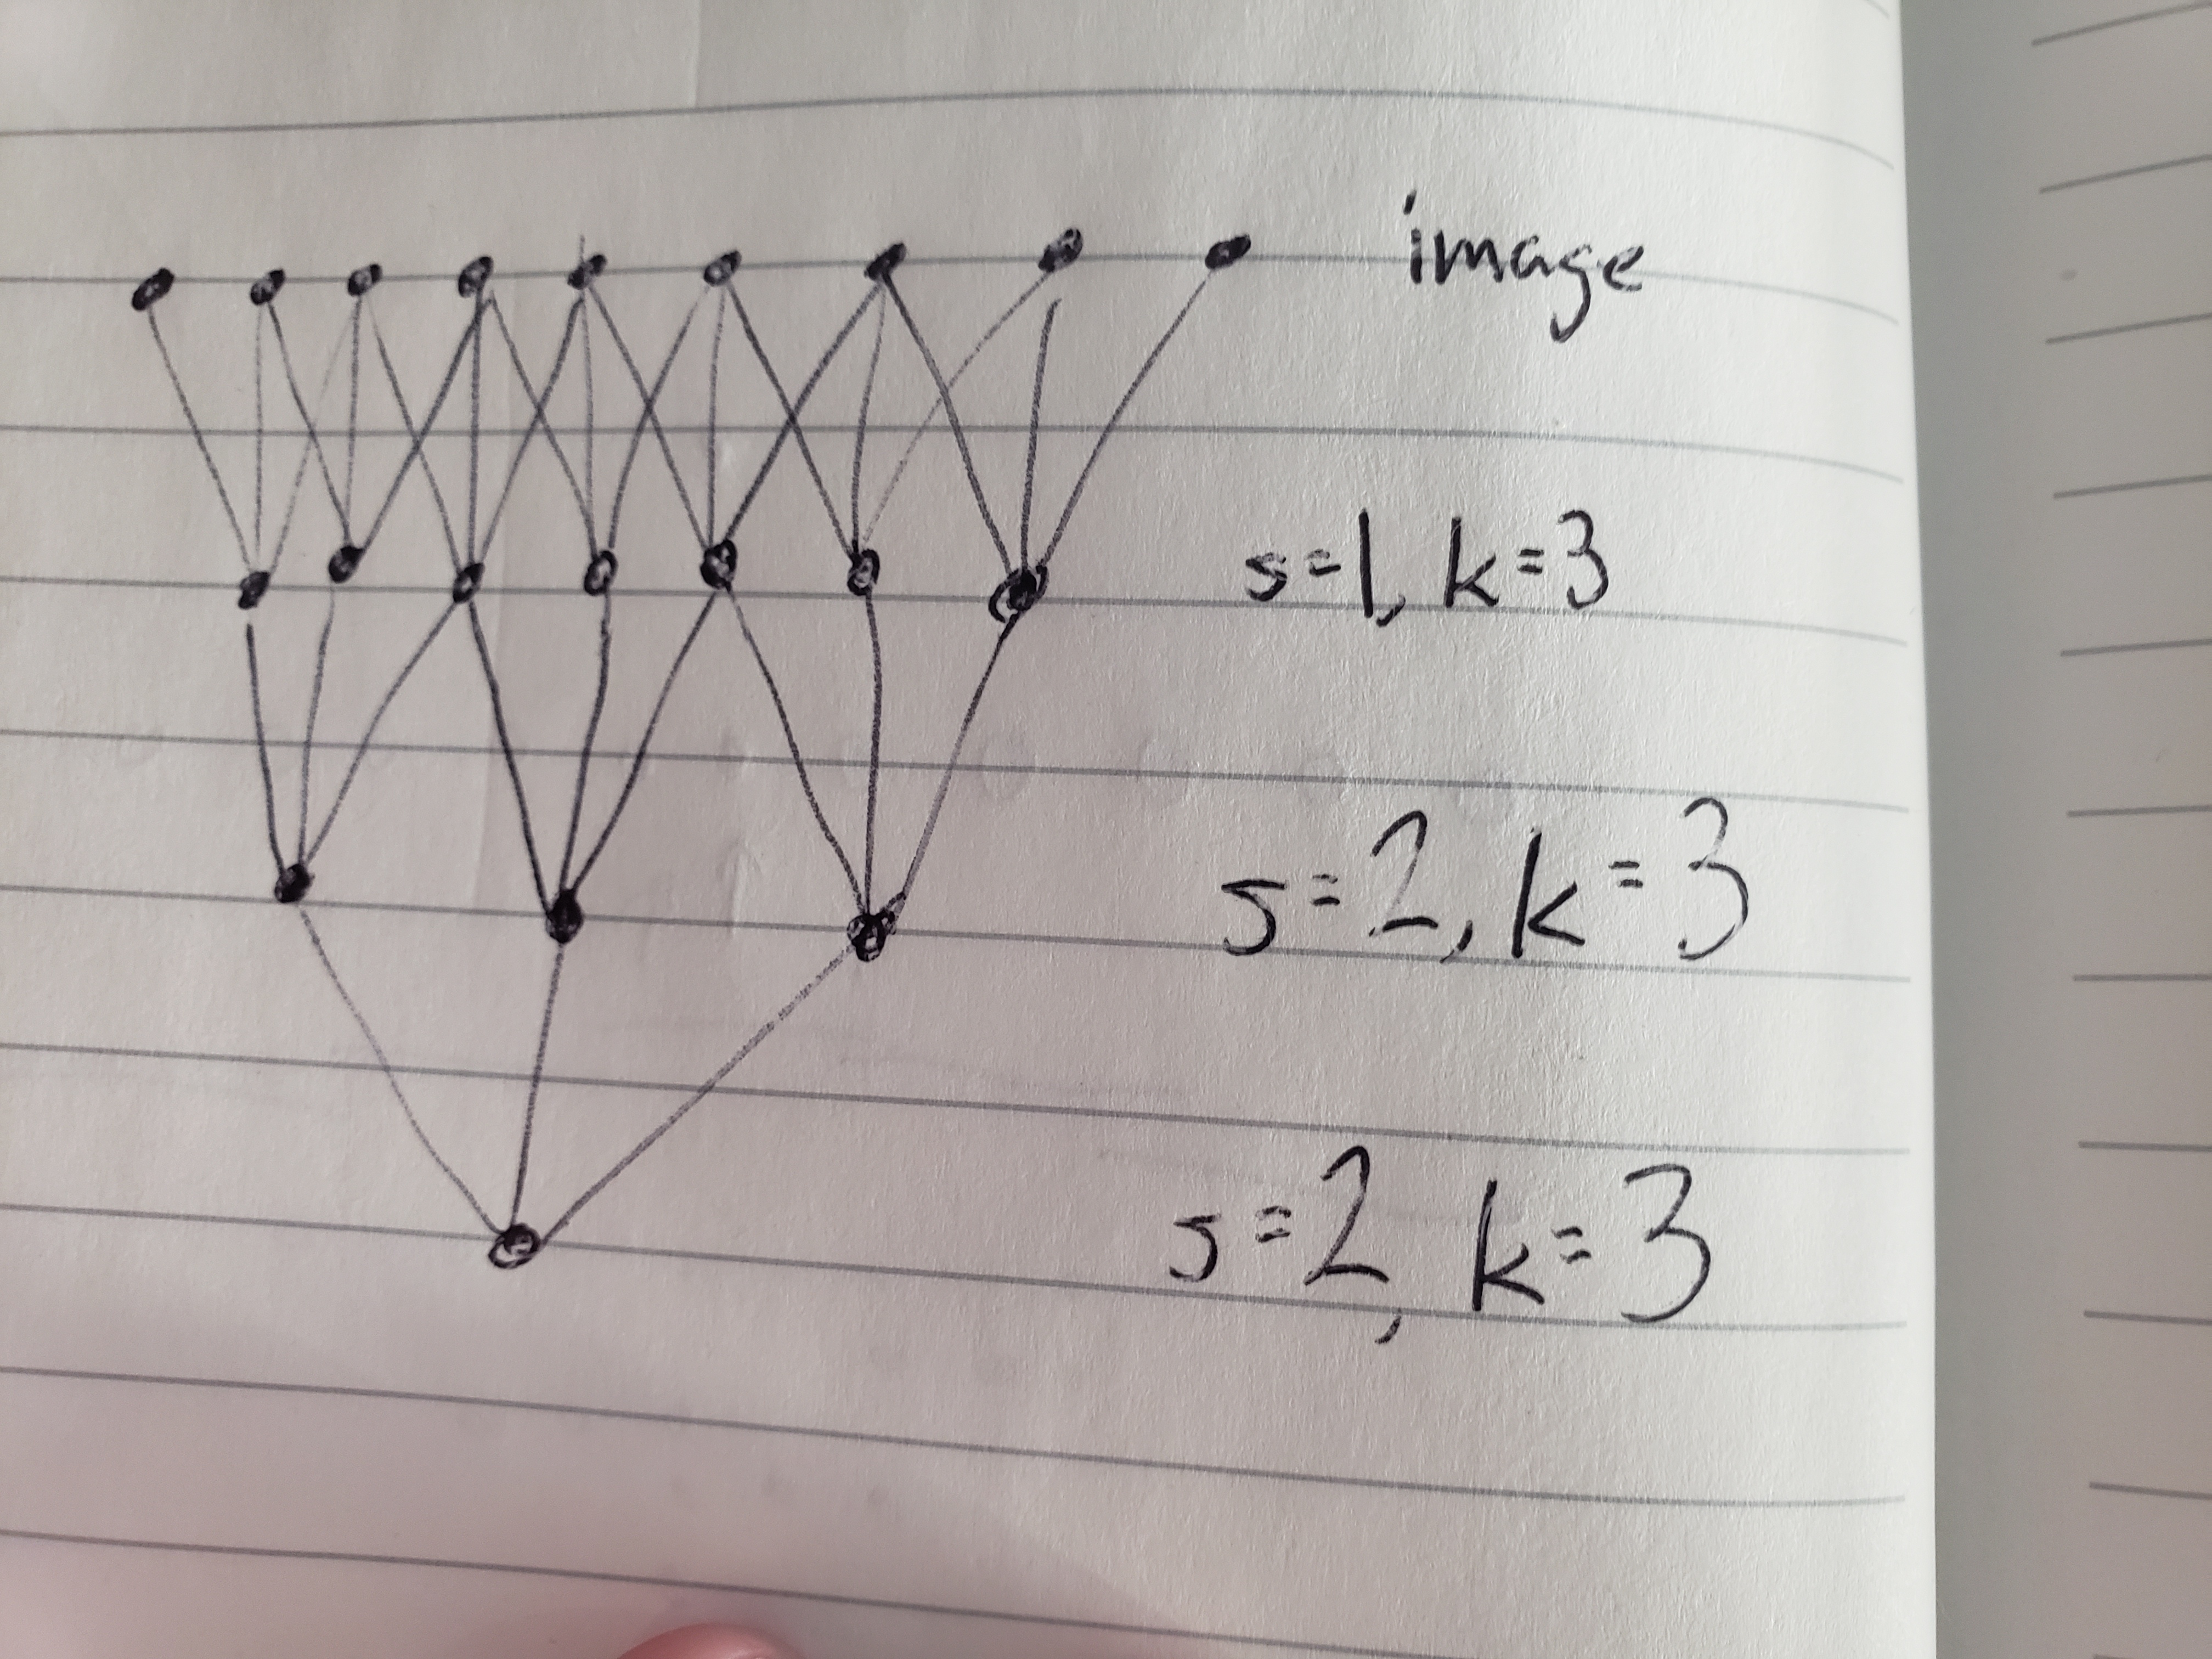 image
s=1, k=3
s=2, k=3
s=2, k=3